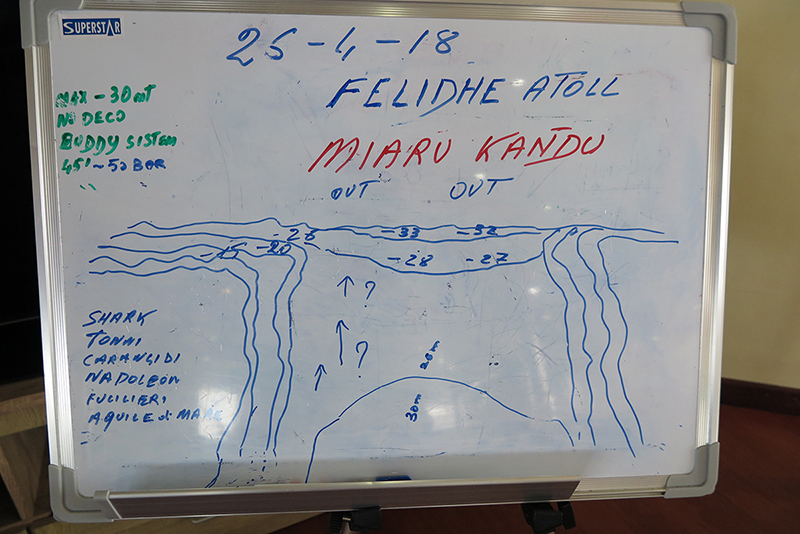 SUPERSTAR
25-4-18
FELIDHE ATOLL
MIARU KANDU
MAX - 30 mt
NO DECO
BUDDY SISTEM
45' ~ 50 BAR
OUT OUT
-33 -32
-25
-28 -27
-15 -20
?
?
20m
30m
SHARK
TONNI
CARANGIDI
NAPOLEON
FUCILIERI
AQUILE di MARE